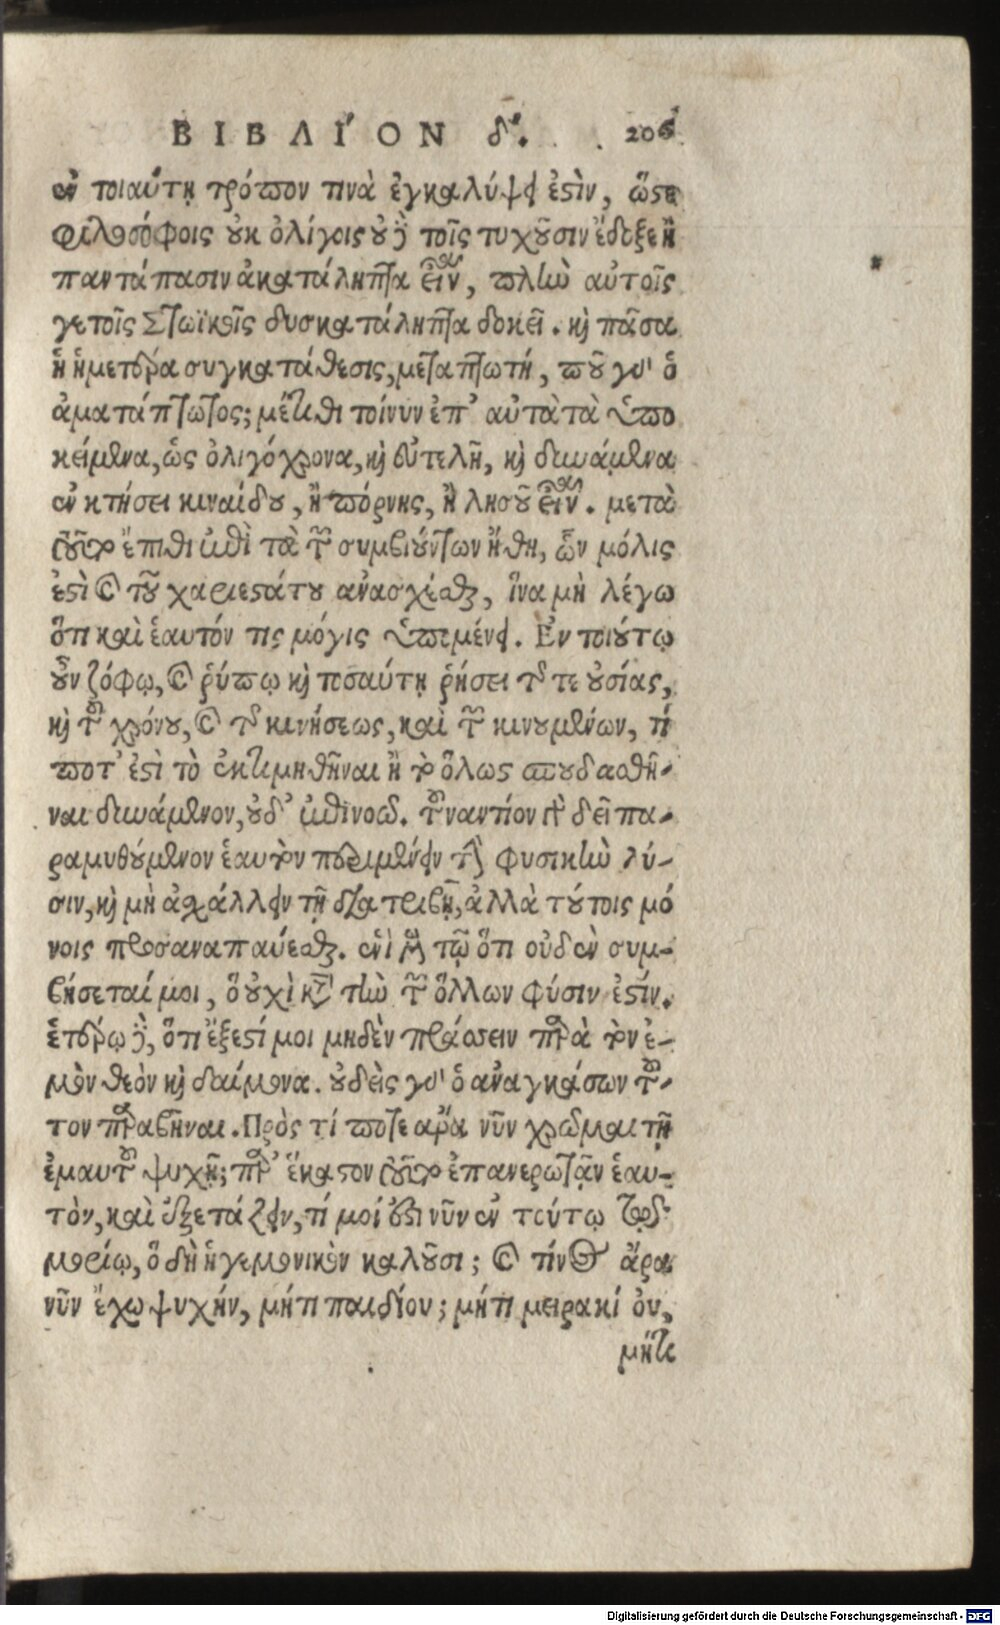 ΒΙΒΛΙ´ΟΝ δ´. 206
ἐν τοιαύτῃ τρόπον τινὰ ἐγκαλύψει ἐστὶν, ὥστε
φιλοσόφοις οὐκ ὀλίγοις οὐδὲ τοῖς τυχοῦσιν ἔδοξεν
παντάπασιν ἀκατάληπτα εἶναι, πλὴν αὐτοῖς
γε τοῖς Στωϊκοῖς δυσκατάληπτα δοκεῖ. καὶ πᾶσα
ἡ ἡμετέρα συγκατάθεσις, μεταπτωτή, ποῦ γὰρ ὁ
ἀματάπτωτος; μέτιθι τοίνυν ἐπ' αὐτὰ τὰ ὑπο
κείμενα, ὡς ὀλιγόχρονα, καὶ εὐτελῆ, καὶ δυνάμενα
ἐν κτήσει κιναίδου, ἢ πόρνης, ἢ λῃστοῦ εἶναι. μετὰ
τοῦτο ἔπιθι ἐπὶ τὰ τῶν συμβιούντων ἤθη, ὧν μόλις
ἐστὶ καὶ τοῦ χαριεστάτου ἀνασχέσθαι, ἵνα μὴ λέγω
ὅτι καὶ ἑαυτόν τις μόγις ὑπομένει. Ἐν τοιούτῳ
οὖν ζόφῳ, καὶ ῥύπῳ καὶ τοσαύτῃ ῥήσει τῆς τε οὐσίας,
καὶ τοῦ χρόνου, καὶ τῆς κινήσεως, καὶ τῶν κινουμένων, τί
ποτ' ἐστὶ τὸ ἐκτιμηθῆναι ἢ τὸ ὅλως σπουδασθῆ-
ναι δυνάμενον, οὐδ' ἐπινοῶ. τοὐναντίον γὰρ δεῖ πα-
ραμυθούμενον ἑαυτὸν περιμένειν τὴν φυσικὴν λύ-
σιν, καὶ μὴ ἀσχάλλειν τῇ διατριβῇ, ἀλλὰ τούτοις μό
νοις προσαναπαύεσθαι. ἑνὶ μὲν τῷ ὅτι οὐδὲν συμ-
βήσεταί μοι, ὃ οὐχὶ κατὰ τὴν τῶν ὅλλων φύσιν ἐστίν.
ἑτέρῳ δὲ, ὅτι ἔξεστί μοι μηδὲν πράσσειν παρὰ τὸν ἐ-
μὸν θεὸν καὶ δαίμονα. οὐδεὶς γὰρ ὁ ἀναγκάσων τοῦ-
τον παραβῆναι. Πρὸς τί ποτε ἄρα νῦν χρῶμαι τῇ
ἐμαυτοῦ ψυχῇ; παρ' ἕκαστον τοῦτο ἐπανερωτᾷν ἑαυ-
τὸν, καὶ ἐξετάζειν, τί μοί ἐστι νῦν ἐν τούτῳ τῷ
μορίῳ, ὃ δὴ ἡγεμονικὸν καλοῦσι; καὶ τίνος ἄρα
νῦν ἔχω ψυχήν, μήτι παιδίου; μήτι μειρακί ου,
μήτι
Digitalisierung gefördert durch die Deutsche Forschungsgemeinschaft - DFG